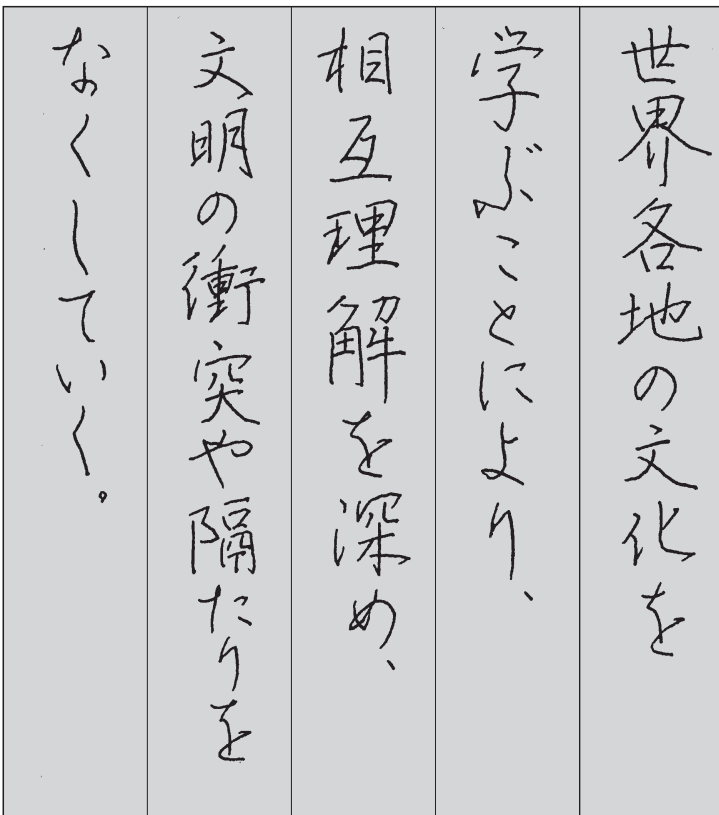 世界各地の文化を
学ぶことにより、
相互理解を深め、
文明の衝突や隔たりを
なくしていく。